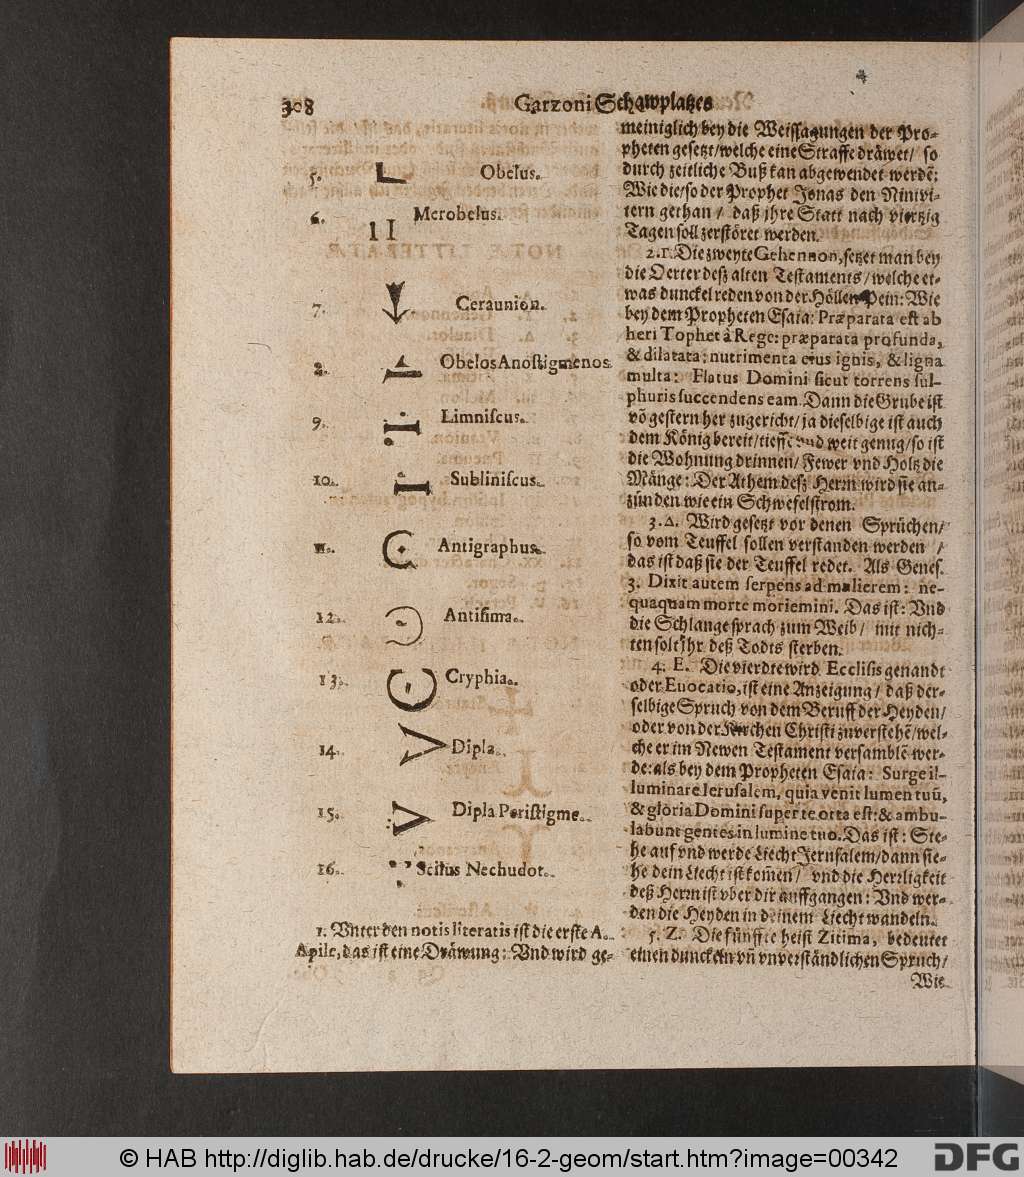 308
Garzoni Schawplatzes
5. Obelus.
6. Merobelus.
7. Ceraunion.
8. Obelos Anoſtigmenos.
9. Limniſcus.
10. Subliniſcus.
11. Antigraphus.
12. Antiſima.
13. Cryphia.
14. Dipla.
15. Dipla Periſtigme.
16. Scitus Nechudot.
1. Vnter den notis literatis iſt die erſte A.
Apile, das iſt eine Dräwung: Vnd wird ge-
meiniglich bey die Weiſſagungen der Pro-
pheten geſetzt/ welche eine Straffe dräwet/ ſo
durch zeitliche Buß kan abgewendet werdẽ:
Wie die/ ſo der Prophet Jonas den Ninivi-
tern gethan/ daß jhre Statt nach viertzig
Tagen ſoll zerſtöret werden.
2. Γ. Die zweyte Gehennon, ſetzet man bey
die Oerter deß alten Teſtaments/ welche et-
was dunckel reden von der Höllen Pein: Wie
bey dem Propheten Eſaia: Præparata eſt ab
heri Tophet à Rege: præparata profunda,
& dilatata: nutrimenta eius ignis, & ligna
multa: Flatus Domini ſicut torrens ſul-
phuris ſuccendens eam. Dann die Grube iſt
vō geſtern her zugericht/ ja dieſelbige iſt auch
dem König bereit/ tieffe vnd weit genug/ ſo iſt
die Wohnung drinnen/ Fewer vnd Holtz die
Mänge: Der Athem deß Herrn wird ſie an-
zünden wie ein Schwefelſtrom.
3. Δ. Wird geſetzt vor denen Sprüchen/
ſo vom Teuffel ſollen verſtanden werden/
das iſt daß ſie der Teuffel redet. Als Geneſ.
3. Dixit autem ſerpens ad mulierem: ne-
quaquam morte moriemini. Das iſt: Vnd
die Schlange ſprach zum Weib/ mit nich-
ten ſolt jhr deß Todts ſterben.
4. E. Die vierdte wird Eccliſis genandt
oder Euocatio, iſt eine Anzeigung/ daß der-
ſelbige Spruch von dem Beruff der Heyden/
oder von der Kirchen Chriſti zuverſtehẽ/ wel-
che er im Newen Teſtament verſamblẽ wer-
de: als bey dem Propheten Eſaia: Surge il-
luminare Ieruſalem, quia venit lumen tuũ,
& gloria Domini ſuper te orta eſt: & ambu-
labunt gentes in lumine tuo. Das iſt: Ste-
he auf vnd werde Liecht Jeruſalem/ dann ſie-
he dein Liecht iſt kom̃en/ vnd die Herrligkeit
deß Herrn iſt vber dir auffgangen: Vnd wer-
den die Heyden in deinem Liecht wandeln.
5. Z. Die fünffte heiſt Zitima, bedeutet
einen dunckeln vñ vnverſtändlichen Spruch/
Wie
© HAB http://diglib.hab.de/drucke/16-2-geom/start.htm?image=00342
DFG